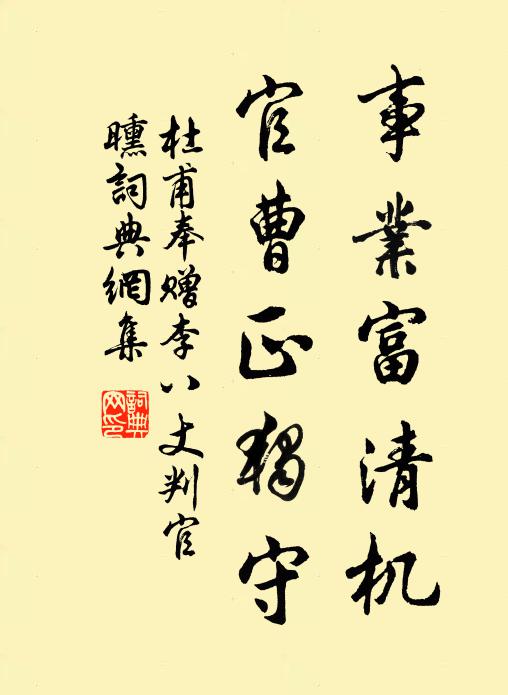 事業富清机
官曹正獨守
杜甫奉赠李八丈判官
曛詞典網集
詞典网印